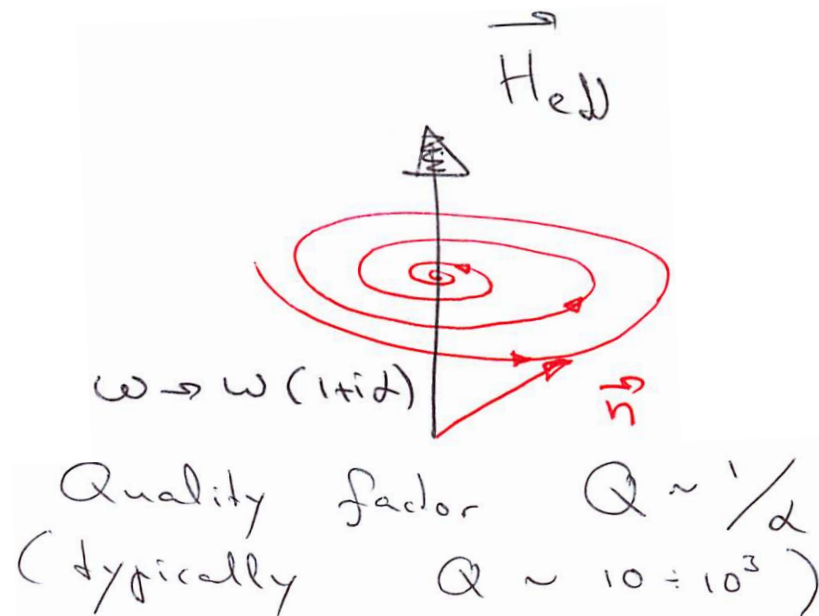 H⃗eff
ω → ω (1+iα)
n⃗
Quality factor Q ~ 1/α
(typically Q ~ 10 ÷ 10³)